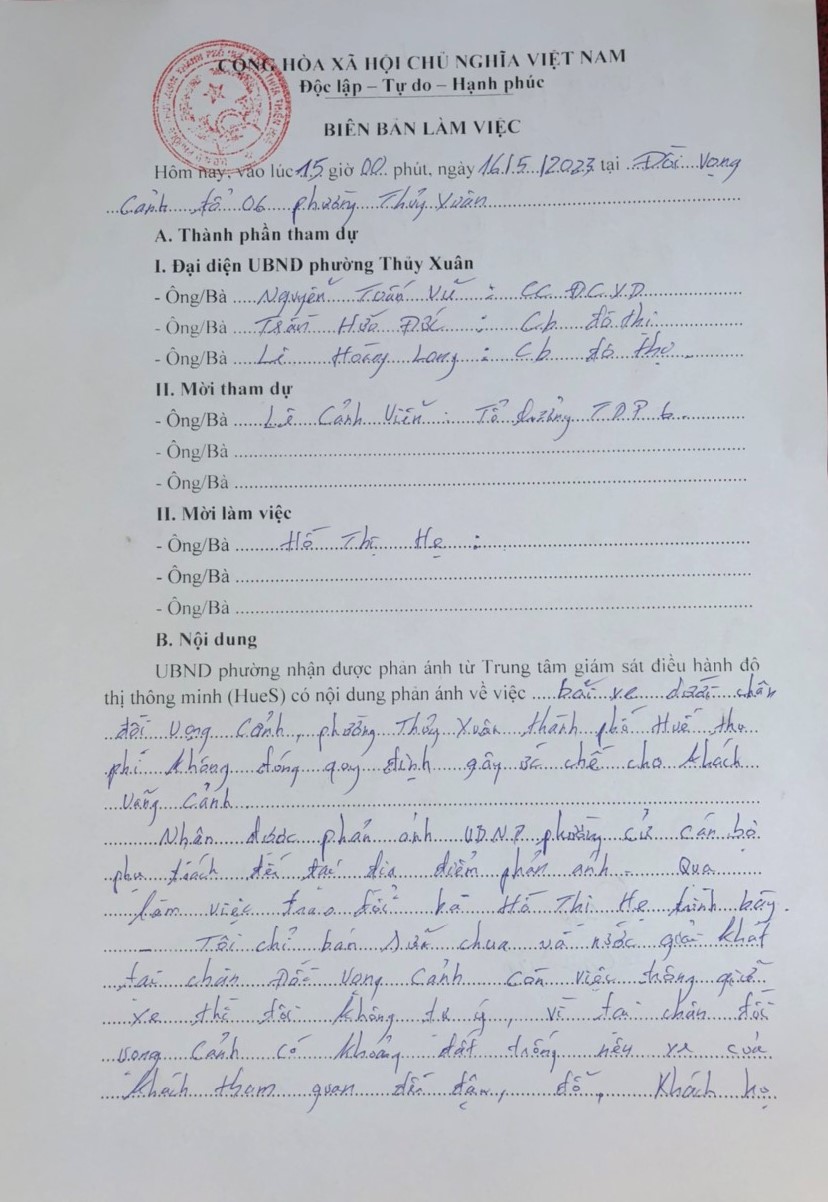 CỘNG HÒA XÃ HỘI CHỦ NGHĨA VIỆT NAM
Độc lập – Tự do – Hạnh phúc
BIÊN BẢN LÀM VIỆC
Hôm nay, vào lúc 15 giờ 00 phút, ngày 16/5/2023 tại Đồi Vọng
Cảnh tổ 06 phường Thủy Xuân
A. Thành phần tham dự
I. Đại diện UBND phường Thủy Xuân
- Ông/Bà Nguyễn Tuấn Vũ : CC ĐC.XD
- Ông/Bà Trần Hữu Đức : Cb đô thị
- Ông/Bà Lê Hoàng Long : Cb đô thị
II. Mời tham dự
- Ông/Bà Lê Cảnh Viễn : Tổ trưởng TDP 6
- Ông/Bà
- Ông/Bà
II. Mời làm việc
- Ông/Bà Hồ Thị Hẹ :
- Ông/Bà
- Ông/Bà
B. Nội dung
UBND phường nhận được phản ánh từ Trung tâm giám sát điều hành đô
thị thông minh (HueS) có nội dung phản ánh về việc bãi xe dưới chân
đồi Vọng Cảnh, phường Thủy Xuân thành phố Huế thu
phí không đúng quy định gây ức chế cho khách
vãng cảnh
Nhận được phản ánh UBND phường cử cán bộ
phụ trách đến tại địa điểm phản ánh. Qua
làm việc trao đổi bà Hồ Thị Hẹ trình bày.
- Tôi chỉ bán sữa chua và nước giải khát
tại chân Đồi Vọng Cảnh còn việc trông giữ
xe thì tôi không tự ý, vì tại chân đồi
Vọng Cảnh có khoảng đất trống nếu xe của
khách tham quan đến đậu, đỗ, khách họ